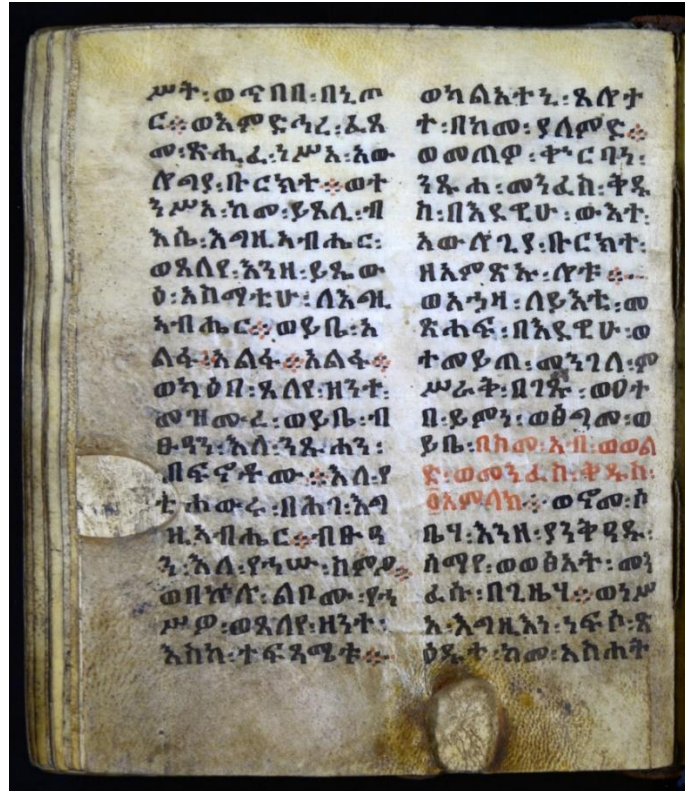 ሥት፡ወጥበበ፡በኒጦ
ር፨ወእምድኅረ፡ፈጸ
መ፡ጽሒፈ፡ንሥአ፡አው
ሎግያ፡ቡርክት፨ወተ
ንሥአ፡ከመ፡ይጸሊ፡ብ
እሴ፡እግዚአብሔር፡
ወጸለየ፡እንዘ፡ይጼው
ዕ፡አስማቲሁ፡ለእግዚ
አብሔር፨ወይቤ፡አ
ልፋ፨አልፋ፨አልፋ፨
ወካዕበ፡ጸለየ፡ዘንተ፡
መዝሙረ፡ወይቤ፡ብ
ፁዓን፡እለ፡ንጹሐን፡
በፍኖቶሙ፨እለ፡የ
ቲ፡ሐውሩ፡በሕገ፡እግ
ዚአብሔር፨ብፁዓ
ን፡እለ፡የኀሡ፡ስምዖ፨
ወበኵሉ፡ልቦሙ፡የኀ
ሥዎ፡ወጸለየ፡ዘንተ፡
እስከ፡ተፍጻሜቱ፨
ወካልአተኒ፡ጸሎታ
ተ፡በከመ፡ያለምድ፨
ወመጠዎ፡ቍርባን፡
ንጹሐ፡መንፈስ፡ቅዱ
ስ፡በእዴዊሁ፡ውእተ፡
አውሎጊያ፡ቡርክተ፡
ዘአምጽኡ፡ሎቱ፨
ወአኀዛ፡ለይእቲ፡መ
ጽሐፍ፡በእዴዊሁ፡ወ
ተመይጠ፡መንገለ፡ም
ሥራቅ፡በገጹ፡ወዐተ
በ፡ይምነ፡ወፅጋመ፡ወ
ይቤ፡በስመ፡አብ፡ወወል
ድ፡ወመንፈስ፡ቅዱስ፡
፩አምላክ፨ወኖመ፡ሶ
ቤሃ፡እንዘ፡ያንቅዓዱ፡
ሰማየ፡ወወፅአት፡መን
ፈሱ፡በጊዜሃ፨ወነሥ
አ፡እግዚእነ፡ነፍሶ፡ጸ
ዕዱተ፡ከመ፡አስሐት